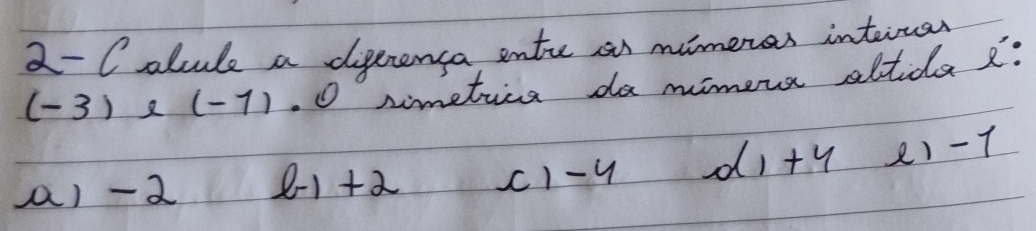 2- Calcule a diferença entre os números inteiros
(-3) e (-1). O simétrico do número obtido é:
a) -2 b) +2 c) -4 d) +4 e) -1